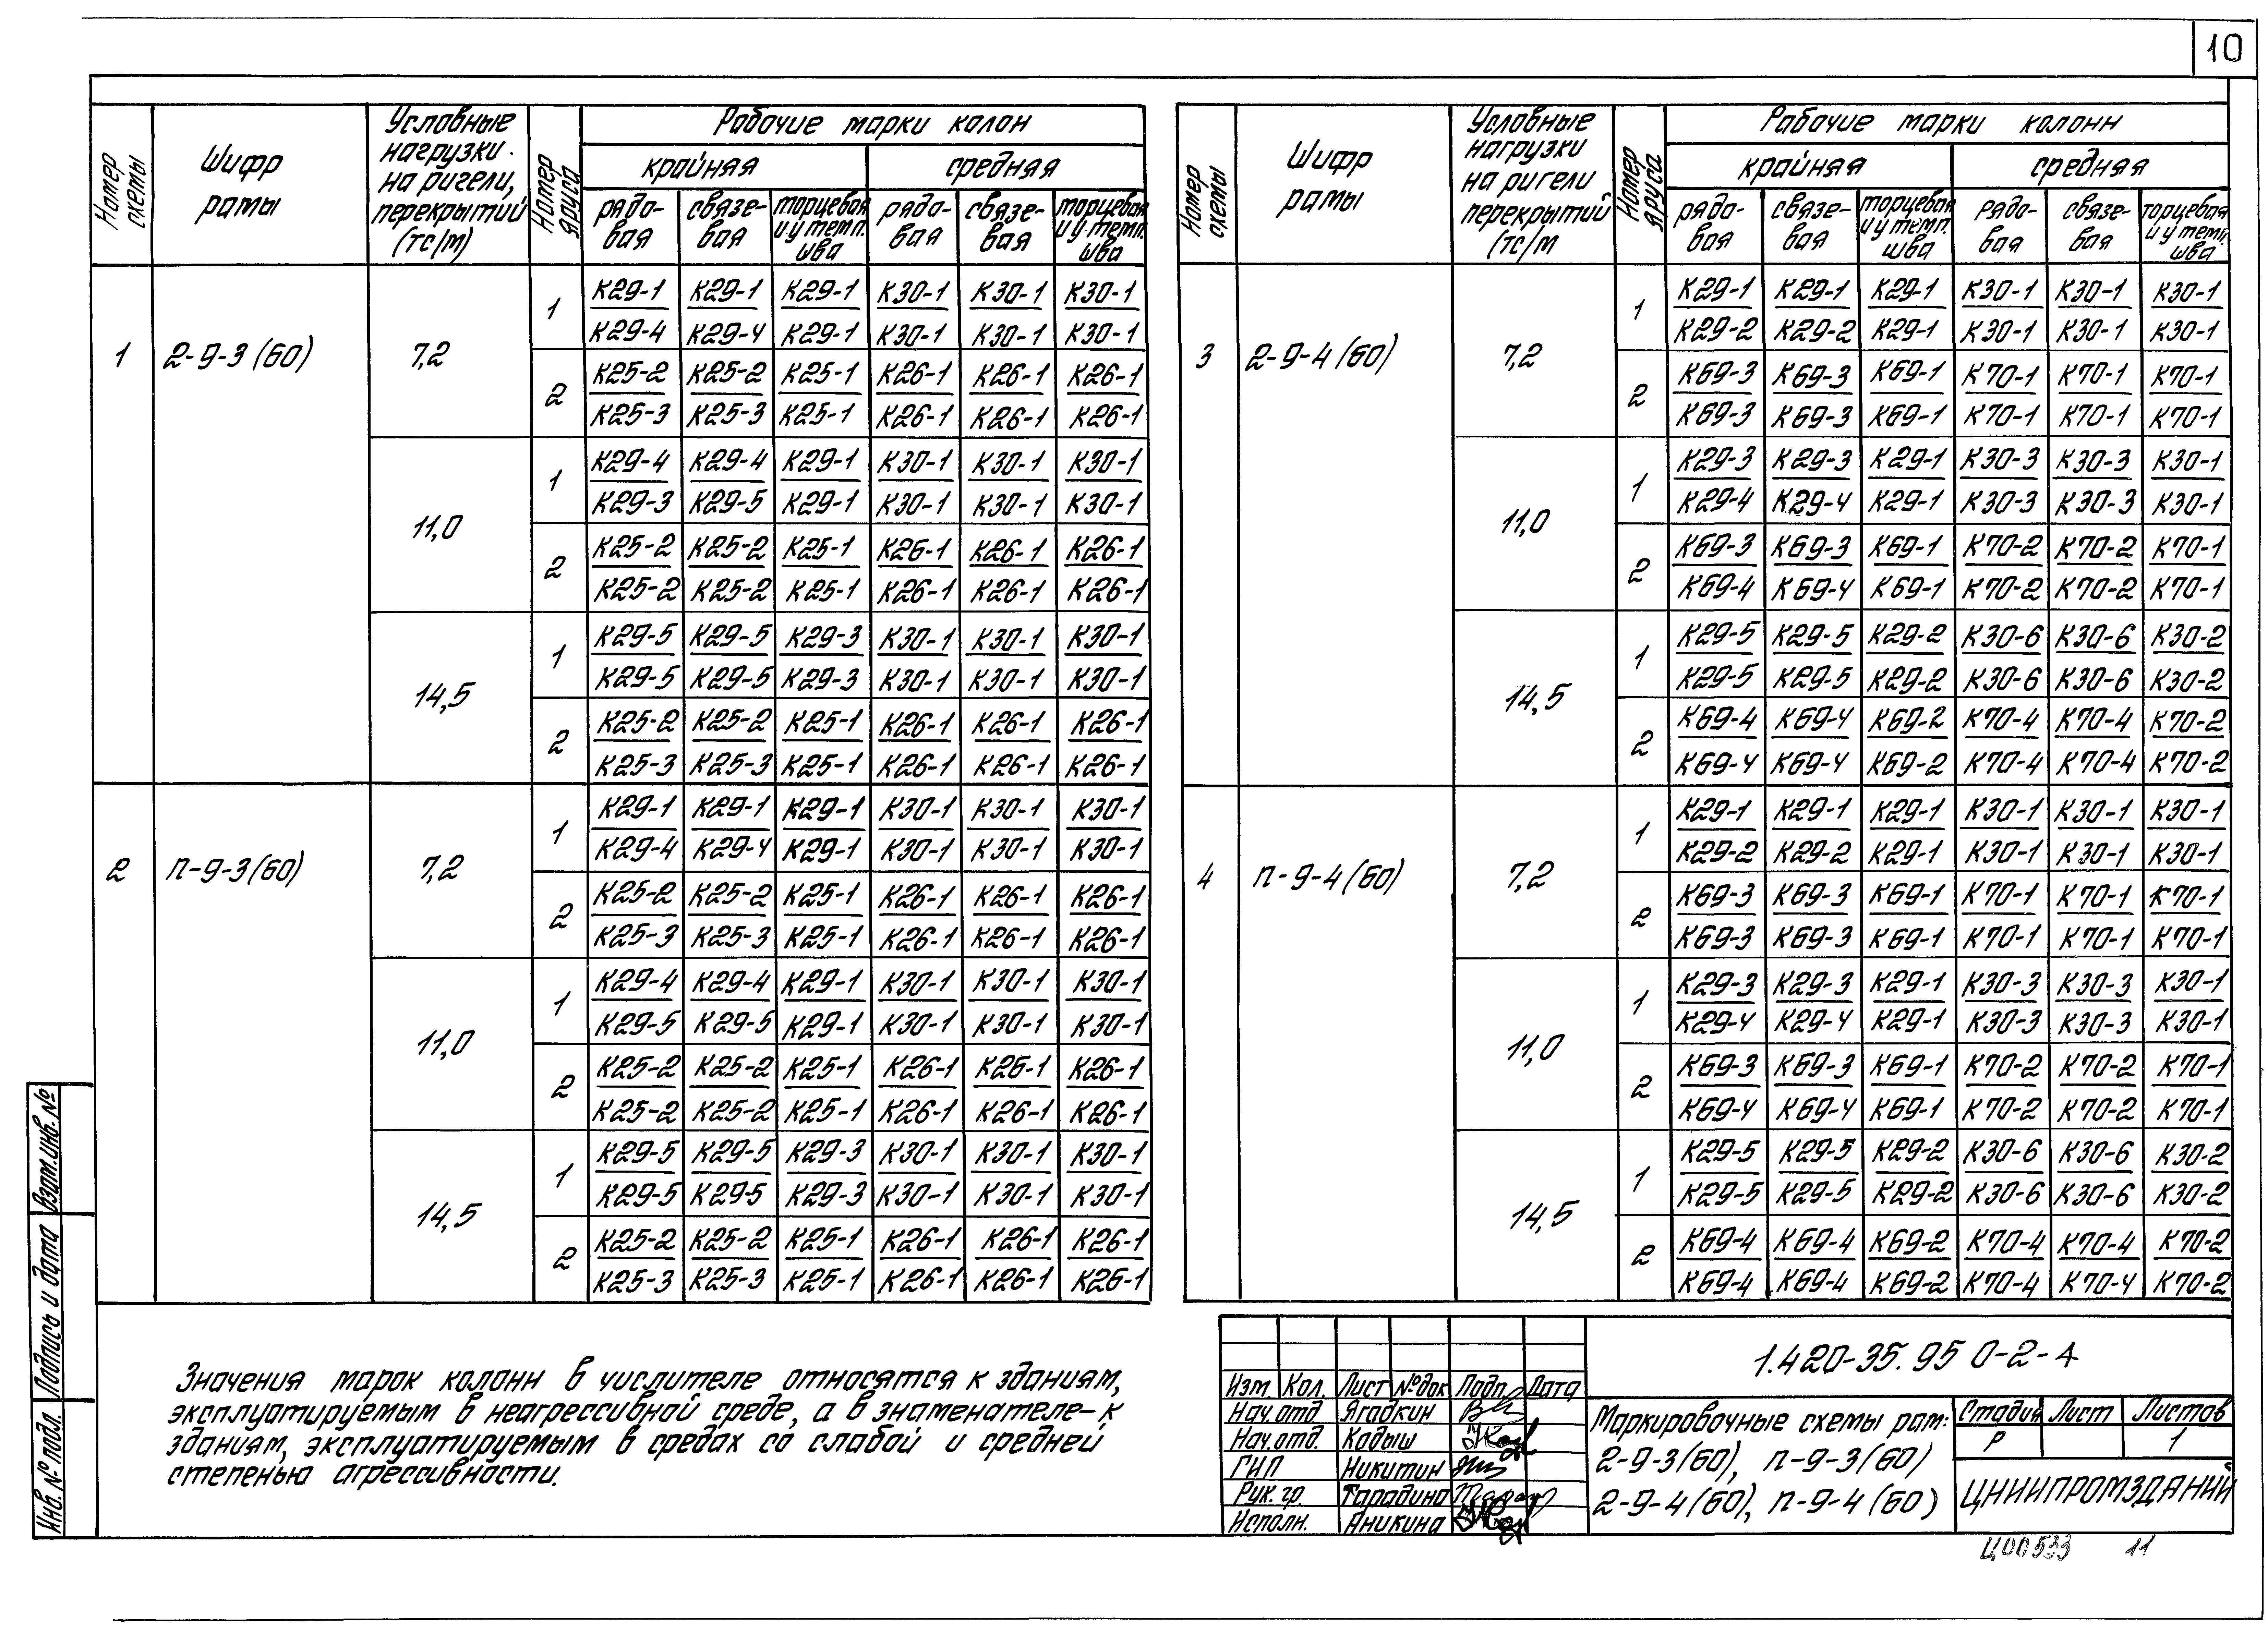 10
Номер схемы
Шифр рамы
Условные нагрузки на ригели, перекрытий (тс/м)
Номер яруса
Рабочие марки колон
крайняя средняя
рядо-вая связе-вая торцевая и у темп. шва рядо-вая связе-вая торцевая и у темп. шва
1 2-9-3(60) 7,2
1 К29-1 К29-1 К29-1 К30-1 К30-1 К30-1
К29-4 К29-4 К29-1 К30-1 К30-1 К30-1
2 К25-2 К25-2 К25-1 К26-1 К26-1 К26-1
К25-3 К25-3 К25-1 К26-1 К26-1 К26-1
11,0
1 К29-4 К29-4 К29-1 К30-1 К30-1 К30-1
К29-3 К29-5 К29-1 К30-1 К30-1 К30-1
2 К25-2 К25-2 К25-1 К26-1 К26-1 К26-1
К25-2 К25-2 К25-1 К26-1 К26-1 К26-1
14,5
1 К29-5 К29-5 К29-3 К30-1 К30-1 К30-1
К29-5 К29-5 К29-3 К30-1 К30-1 К30-1
2 К25-2 К25-2 К25-1 К26-1 К26-1 К26-1
К25-3 К25-3 К25-1 К26-1 К26-1 К26-1
2 п-9-3(60) 7,2
1 К29-1 К29-1 К29-1 К30-1 К30-1 К30-1
К29-4 К29-4 К29-1 К30-1 К30-1 К30-1
2 К25-2 К25-2 К25-1 К26-1 К26-1 К26-1
К25-3 К25-3 К25-1 К26-1 К26-1 К26-1
11,0
1 К29-4 К29-4 К29-1 К30-1 К30-1 К30-1
К29-5 К29-5 К29-1 К30-1 К30-1 К30-1
2 К25-2 К25-2 К25-1 К26-1 К26-1 К26-1
К25-2 К25-2 К25-1 К26-1 К26-1 К26-1
14,5
1 К29-5 К29-5 К29-3 К30-1 К30-1 К30-1
К29-5 К29-5 К29-3 К30-1 К30-1 К30-1
2 К25-2 К25-2 К25-1 К26-1 К26-1 К26-1
К25-3 К25-3 К25-1 К26-1 К26-1 К26-1
Номер схемы
Шифр рамы
Условные нагрузки на ригели перекрытий (тс/м
Номер яруса
Рабочие марки колонн
крайняя средняя
рядо-вая связе-вая торцевая и у темп. шва рядо-вая связе-вая торцевая и у темп. шва
3 2-9-4(60) 7,2
1 К29-1 К29-1 К29-1 К30-1 К30-1 К30-1
К29-2 К29-2 К29-1 К30-1 К30-1 К30-1
2 К69-3 К69-3 К69-1 К70-1 К70-1 К70-1
К69-3 К69-3 К69-1 К70-1 К70-1 К70-1
11,0
1 К29-3 К29-3 К29-1 К30-3 К30-3 К30-1
К29-4 К29-4 К29-1 К30-3 К30-3 К30-1
2 К69-3 К69-3 К69-1 К70-2 К70-2 К70-1
К69-4 К69-4 К69-1 К70-2 К70-2 К70-1
14,5
1 К29-5 К29-5 К29-2 К30-6 К30-6 К30-2
К29-5 К29-5 К29-2 К30-6 К30-6 К30-2
2 К69-4 К69-4 К69-2 К70-4 К70-4 К70-2
К69-4 К69-4 К69-2 К70-4 К70-4 К70-2
4 п-9-4(60) 7,2
1 К29-1 К29-1 К29-1 К30-1 К30-1 К30-1
К29-2 К29-2 К29-1 К30-1 К30-1 К30-1
2 К69-3 К69-3 К69-1 К70-1 К70-1 К70-1
К69-3 К69-3 К69-1 К70-1 К70-1 К70-1
11,0
1 К29-3 К29-3 К29-1 К30-3 К30-3 К30-1
К29-4 К29-4 К29-1 К30-3 К30-3 К30-1
2 К69-3 К69-3 К69-1 К70-2 К70-2 К70-1
К69-4 К69-4 К69-1 К70-2 К70-2 К70-1
14,5
1 К29-5 К29-5 К29-2 К30-6 К30-6 К30-2
К29-5 К29-5 К29-2 К30-6 К30-6 К30-2
2 К69-4 К69-4 К69-2 К70-4 К70-4 К70-2
К69-4 К69-4 К69-2 К70-4 К70-4 К70-2
Значения марок колонн в числителе относятся к зданиям,
эксплуатируемым в неагрессивной среде, а в знаменателе-к
зданиям, эксплуатируемым в средах со слабой и средней
степенью агрессивности.
Взам.инв.№
Подпись и дата
Инв.№ подл.
Изм. Кол. Лист №док Подп. Дата
Нач.отд Ягадкин
Нач.отд. Кадыш
ГИП Никитин
Рук.гр. Тарадина
Исполн. Аникина
1.420-35.95 0-2-4
Маркировочные схемы рам:
2-9-3(60), п-9-3(60)
2-9-4(60), п-9-4(60)
Стадия Лист Листов
Р 1
ЦНИИПРОМЗДАНИЙ
Ц00533 11